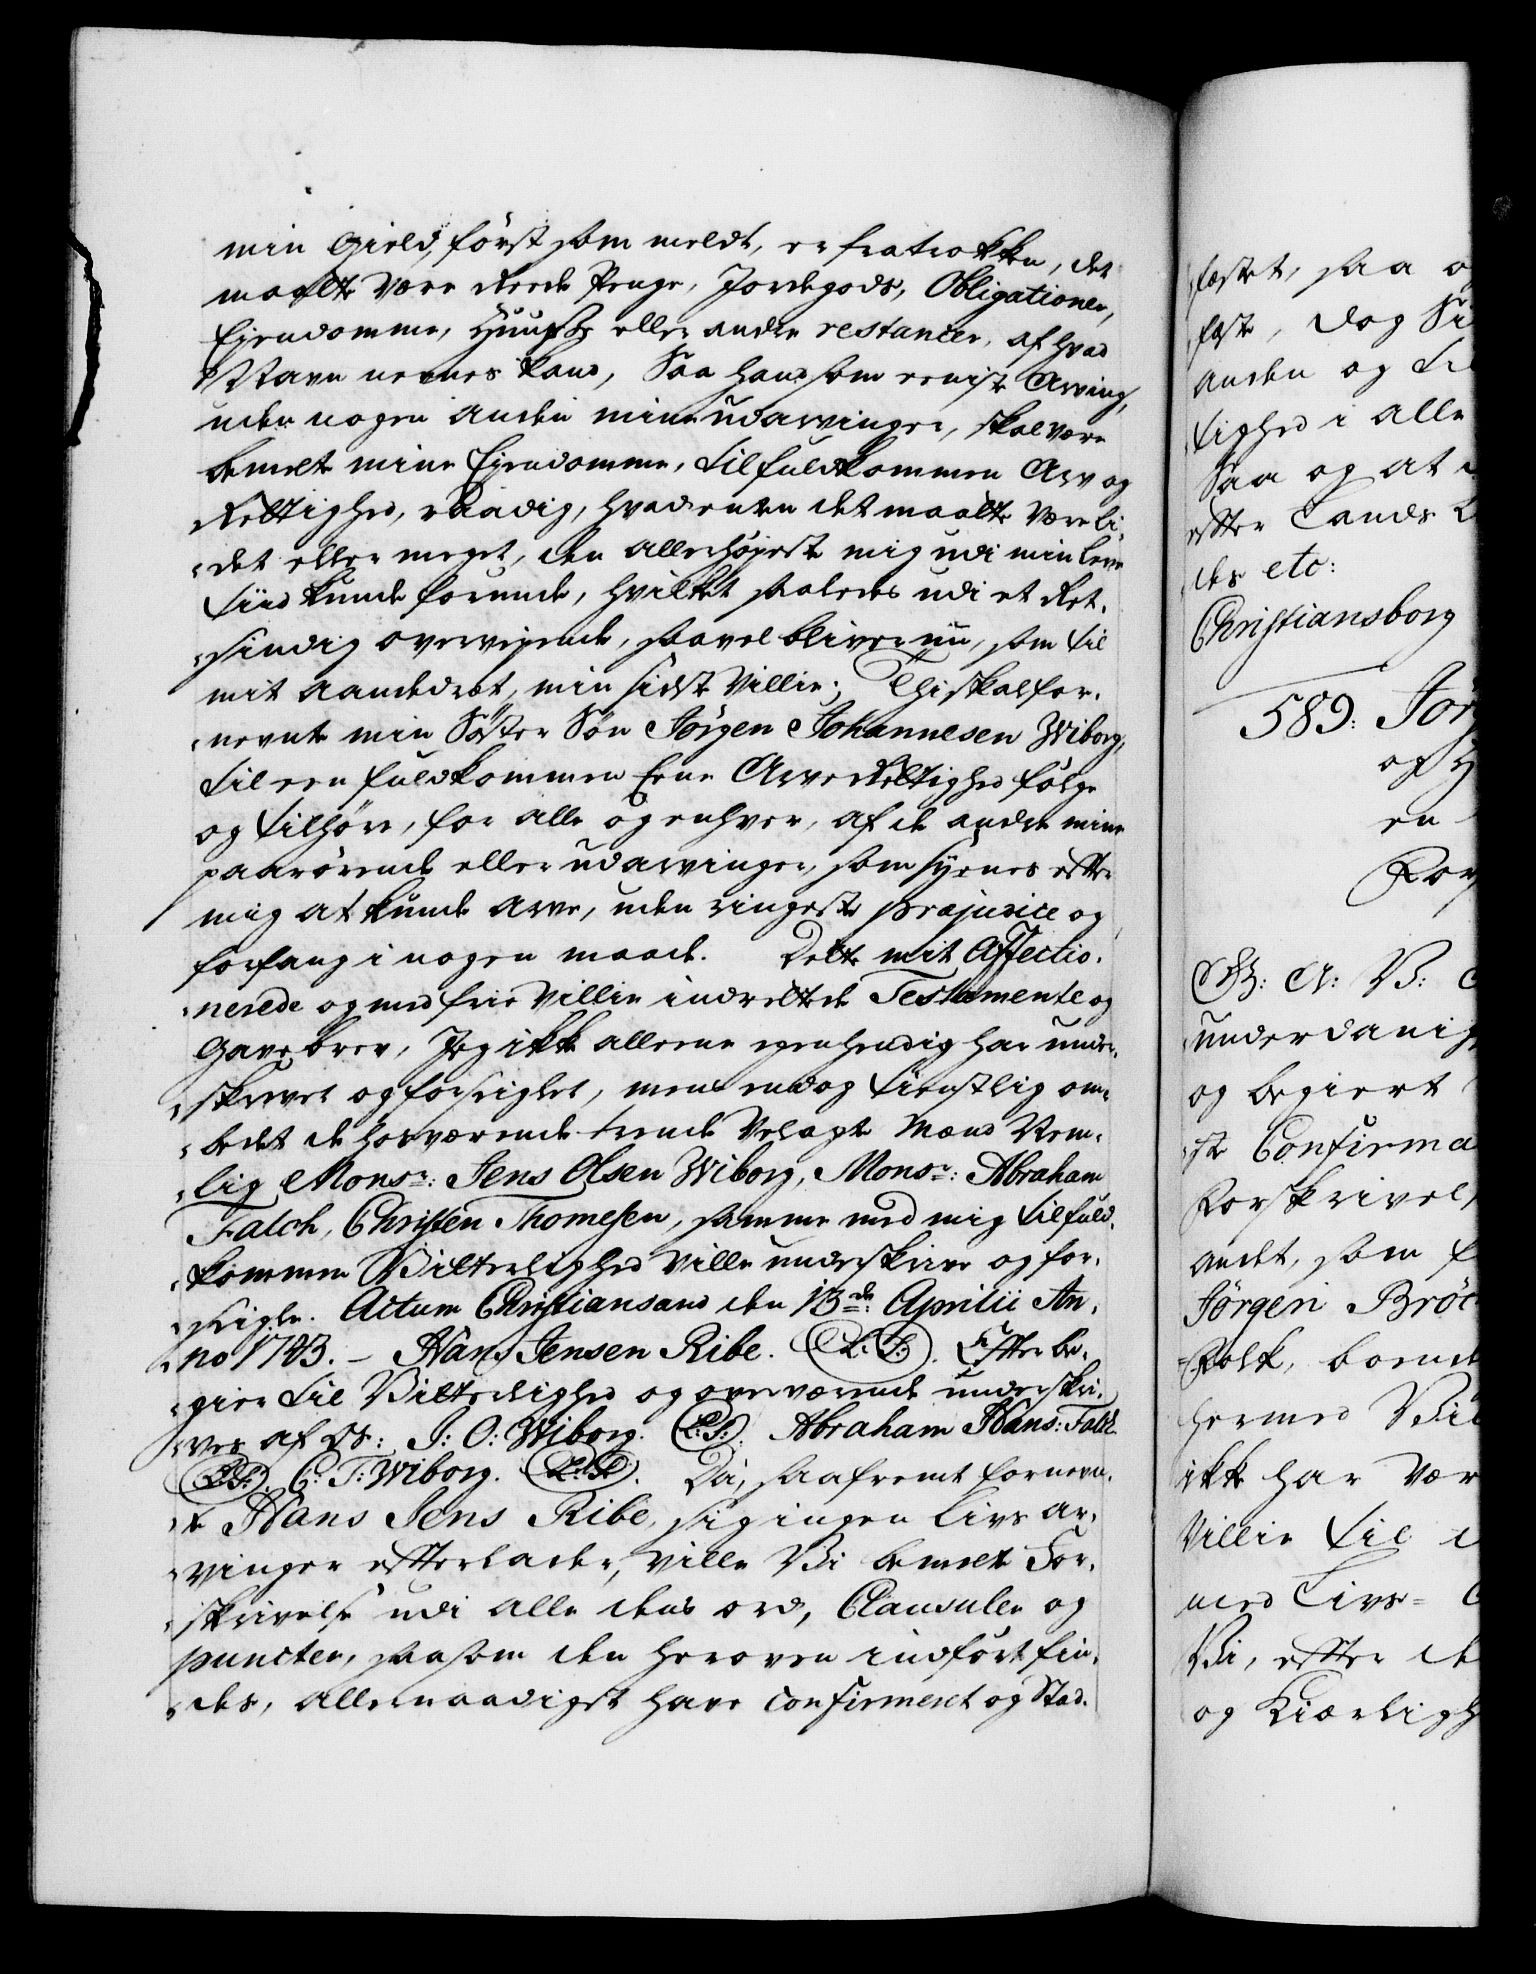 min Gield, först som meldt, er fratrokken, det
maatte være Rede Penge, Jordegods, Obligationer,
Eyendomme, Huuse eller andre restancer, af hvad
Navn nevnes kand, Saa hand som eeniste Arving,
uden nogen anden mine udarvinger, skal være
bemelte mine Eyendomme, til fuldkommen Arv og
Rettighed, raadig, hvad enten det maatte være li-
det eller meget, den Allerhöyeste mig udi min leve
tiid kunde forunde, hvilket saaledes udi et Ret-
sindig overveyende, saavel bliver nu, som til
mit aandedræt, min sidste Villie; Thi skal for-
nevnte min Söster Sön Jörgen Johannesen Wiborg,
til een fuldkommen Eene Arve Rettighed fölge
og tilhöre, for alle og enhver, af de andre mine
paarörende eller udarvinger, som synes efter
mig at kunde arve, uden ringeste præjudice og
forfang i nogen maade. Dette mit Affectio-
nerede og med frie Villie indrettede Testamente og
Gavebrev, Jeg ikke alleene egenhendig har under-
skrevet og forseiglet, mens endog tienstlig om-
bedet de hosværende trende Velagte Mænd Nem-
lig Monsr: Jens Olsen Wiborg, Monsr: Abraham
Falch, Christen Thomesen, samme med mig til fuld-
kommen Vitterlighed ville underskrive og for-
seigle. Actum Christiansand den 13de Aprilii An-
no 1743. – Hans Jensen Ribe. (L.S.). Efter be-
giær til Vitterlighed og overværende underskri-
ves af Os: J: O: Wiborg. (L:S:). Abraham Hans: Falch
(L:S:). C: T: Wiborg. (L:S:). Da, saafremt fornevn-
te Hans Jens Ribe, sig ingen Livs ar-
vinger efterlader, ville Vi bemelte For-
skrivelse udi alle dens ord, Clausuler og
puncter, saasom den heroven indfört fin-
des, allernaadigst have confirmeret og Stad-
fæstet, saa o
fæste, dog Si
anden og til
tighed i alle
Saa og at
efter Lands L
des etc:
Christiansborg
589: Jör
of H
en
For
Gr: A: V: 
underdanig
og begiert
ste Confirma
Forskrivel
andet, som f
Jörgen Bröc
Folk, boende
hermed Vil
ikke har Vær
Villie til
med Livs-
Vi, efter de
og Kiærligh